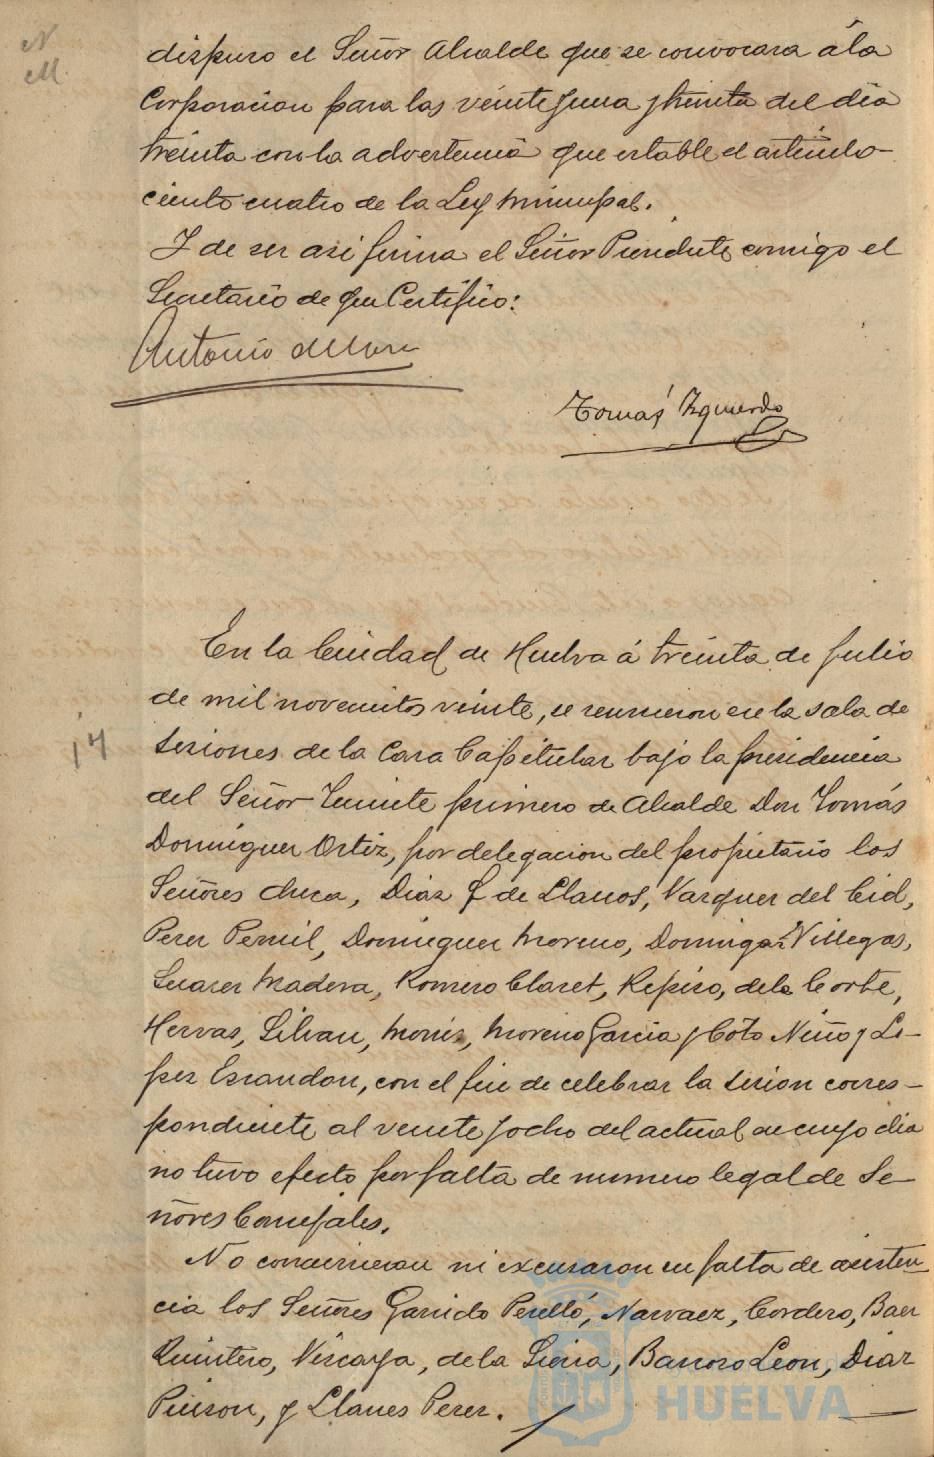 N
M.
dispuso el Señor Alcalde que se convocara á la
Corporacion para las veinte y una y treinta del dia
treinta con la advertencia que estable el articulo
ciento cuatro de la Ley Municipal.
Y de ser asi firma el Señor Presidente comigo el
Secretario de que Certifico:
Antonio de Mora
Tomás Izquierdo
En la Ciudad de Huelva á treinta de Julio
de mil novecientos veinte, se reunieron en la sala de
17
sesiones de la Casa Capitular bajo la presidencia
del Señor Teniente primero de Alcalde Don Tomás
Dominguez Ortiz, por delegacion del propietario los
Señores Checa, Diaz F de Llanos, Vazquez del Cid,
Perez Pernil, Dominguez Moreno, Domingez Villegas,
Suarez Madera, Romero Claret, Repiso, de la Corte,
Hervas, Silvan, Monis, Moreno Garcia y Coto Niño y Lo-
pez Escandon, con el fin de celebrar la sesion corres-
pondiente al veinte y ocho del actual en cuyo dia
no tuvo efecto por falta de numero legal de Se-
ñores Concejales.
No concurrieron ni excusaron su falta de asisten-
cia los Señores Garrido Perelló, Narvaez, Cordero, Baez
Quintero, Vizcaya, de la Sierra, Barroso Leon, Diaz
Pinzon, y Llanes Perez.
HUELVA